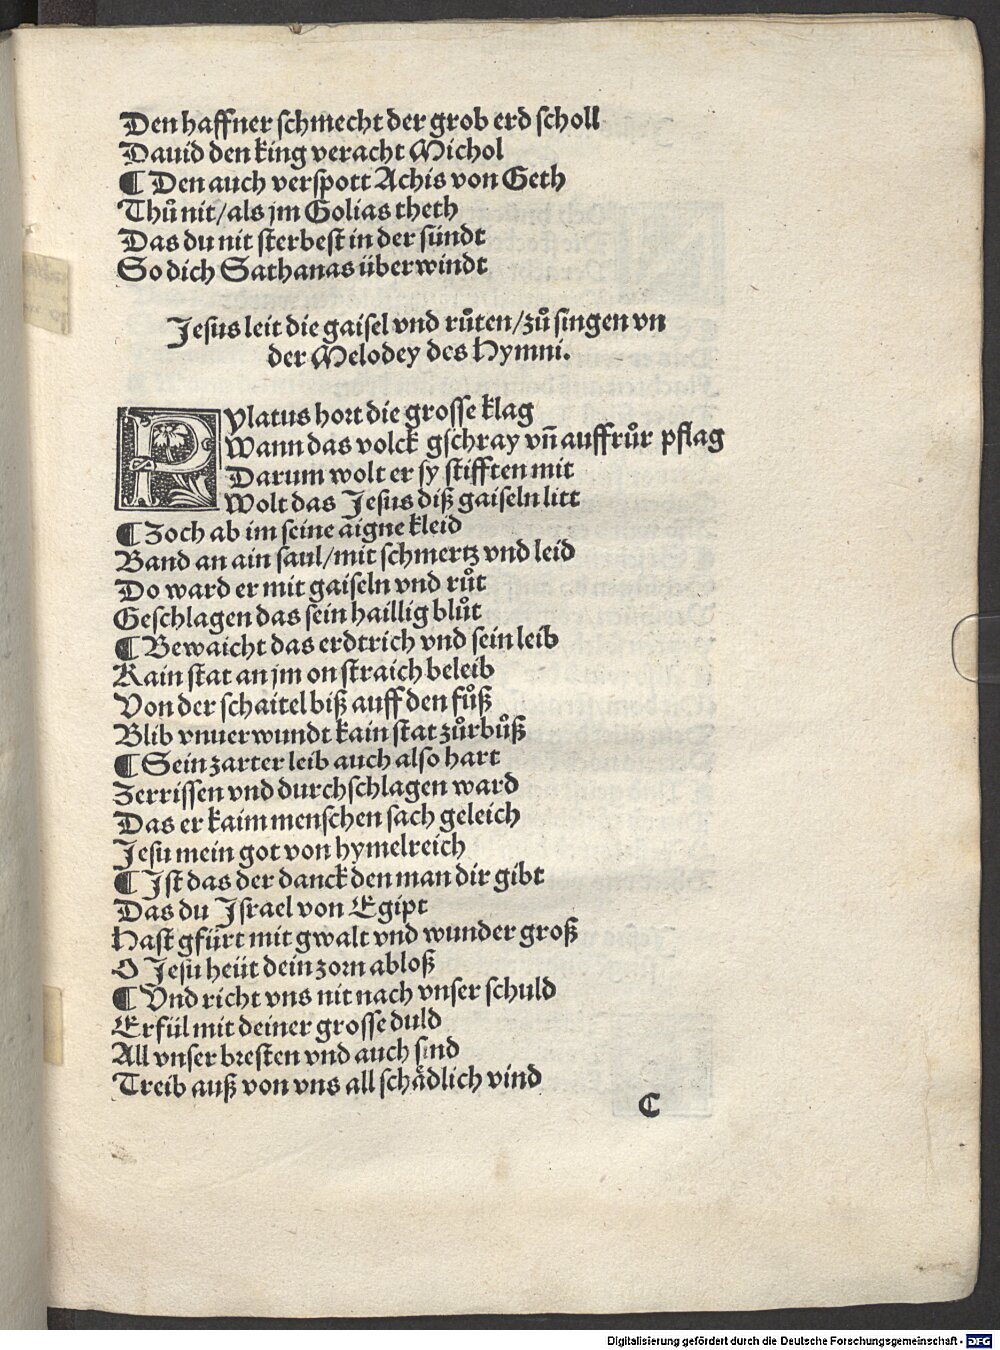 Den haffner schmecht der grob erd scholl
Dauid den king veracht Michol
¶ Den auch verspott Achis von Geth
Thuͦ nit/als jm Golias theth
Das du nit sterbest in der sündt
So dich Sathanas überwindt
Jesus leit die gaisel vnd ruͦten/zuͦ singen vn
der Melodey des Hymni.
Pylatus hort die grosse klag
Wann das volck gschray vñ auffruͦr pflag
Darum wolt er sy stifften mit
Wolt das Jesus diß gaiseln litt
¶ Zoch ab im seine aigne kleid
Band an ain saul/mit schmertz vnd leid
Do ward er mit gaiseln vnd ruͦt
Geschlagen das sein haillig bluͦt
¶ Bewaicht das erdtrich vnd sein leib
Kain stat an jm on straich beleib
Von der schaitel biß auff den fuͦß
Blib vnuerwundt kain stat zuͦrbuͦß
¶ Sein zarter leib auch also hart
Zerrissen vnd durchschlagen ward
Das er kaim menschen sach geleich
Jesu mein got von hymelreich
¶ Ist das der danck den man dir gibt
Das du Israel von Egipt
Hast gfürt mit gwalt vnd wunder groß
O Jesu heüt dein zorn abloß
¶ Vnd richt vns nit nach vnser schuld
Erfül mit deiner grosse duld
All vnser bresten vnd auch sind
Treib auß von vns all schådlich vind
C
Digitalisierung gefördert durch die Deutsche Forschungsgemeinschaft - DFG